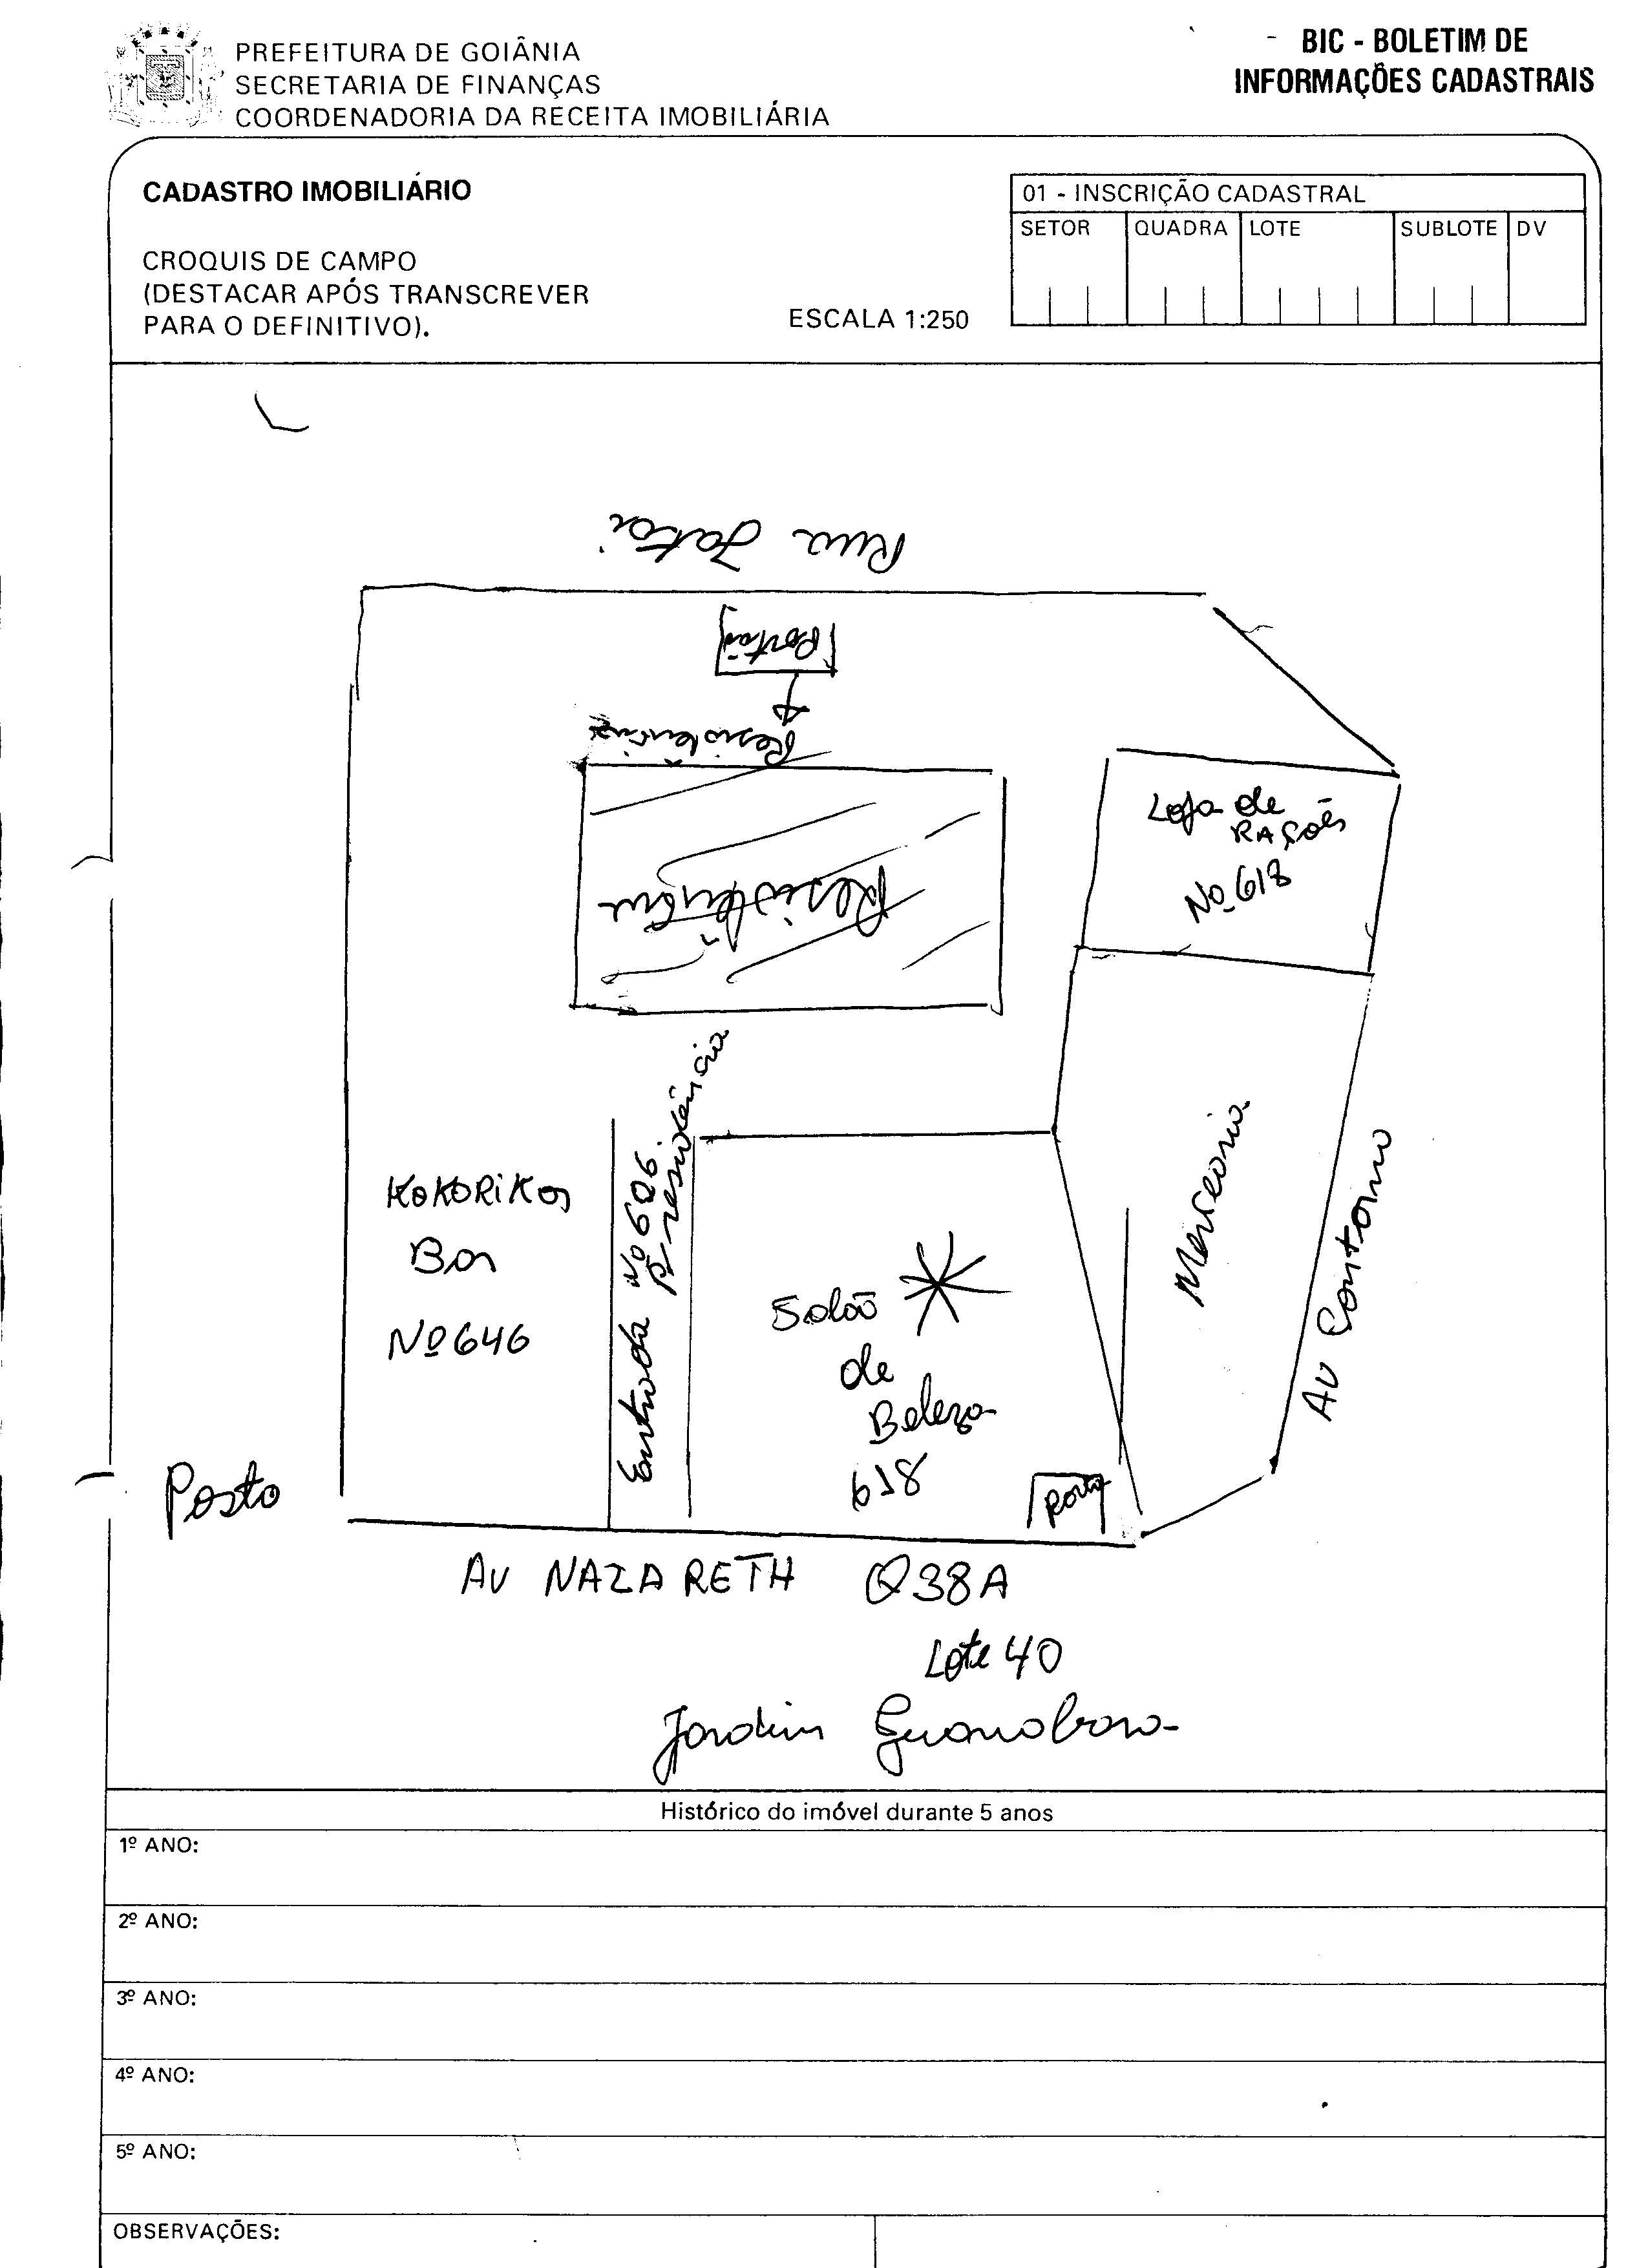 PREFEITURA DE GOIÂNIA
SECRETARIA DE FINANÇAS
COORDENADORIA DA RECEITA IMOBILIÁRIA
BIC - BOLETIM DE
INFORMAÇÕES CADASTRAIS
CADASTRO IMOBILIÁRIO
CROQUIS DE CAMPO
(DESTACAR APÓS TRANSCREVER
PARA O DEFINITIVO).
ESCALA 1:250
01 - INSCRIÇÃO CADASTRAL
SETOR QUADRA LOTE SUBLOTE DV
Rua Jataí
Portão
Residência
Residência
Loja de
RAções
No 618
Mercearia
Av Contorno
KOKORIKOS
Bar
Nº 646
Entrada Nº 626
P/ residência
Salão
de
Beleza
618
Porta
Posto
AV NAZARETH Q38A
Lote 40
Jardim Guanabara
Histórico do imóvel durante 5 anos
1º ANO:
2º ANO:
3º ANO:
4º ANO:
5º ANO:
OBSERVAÇÕES: